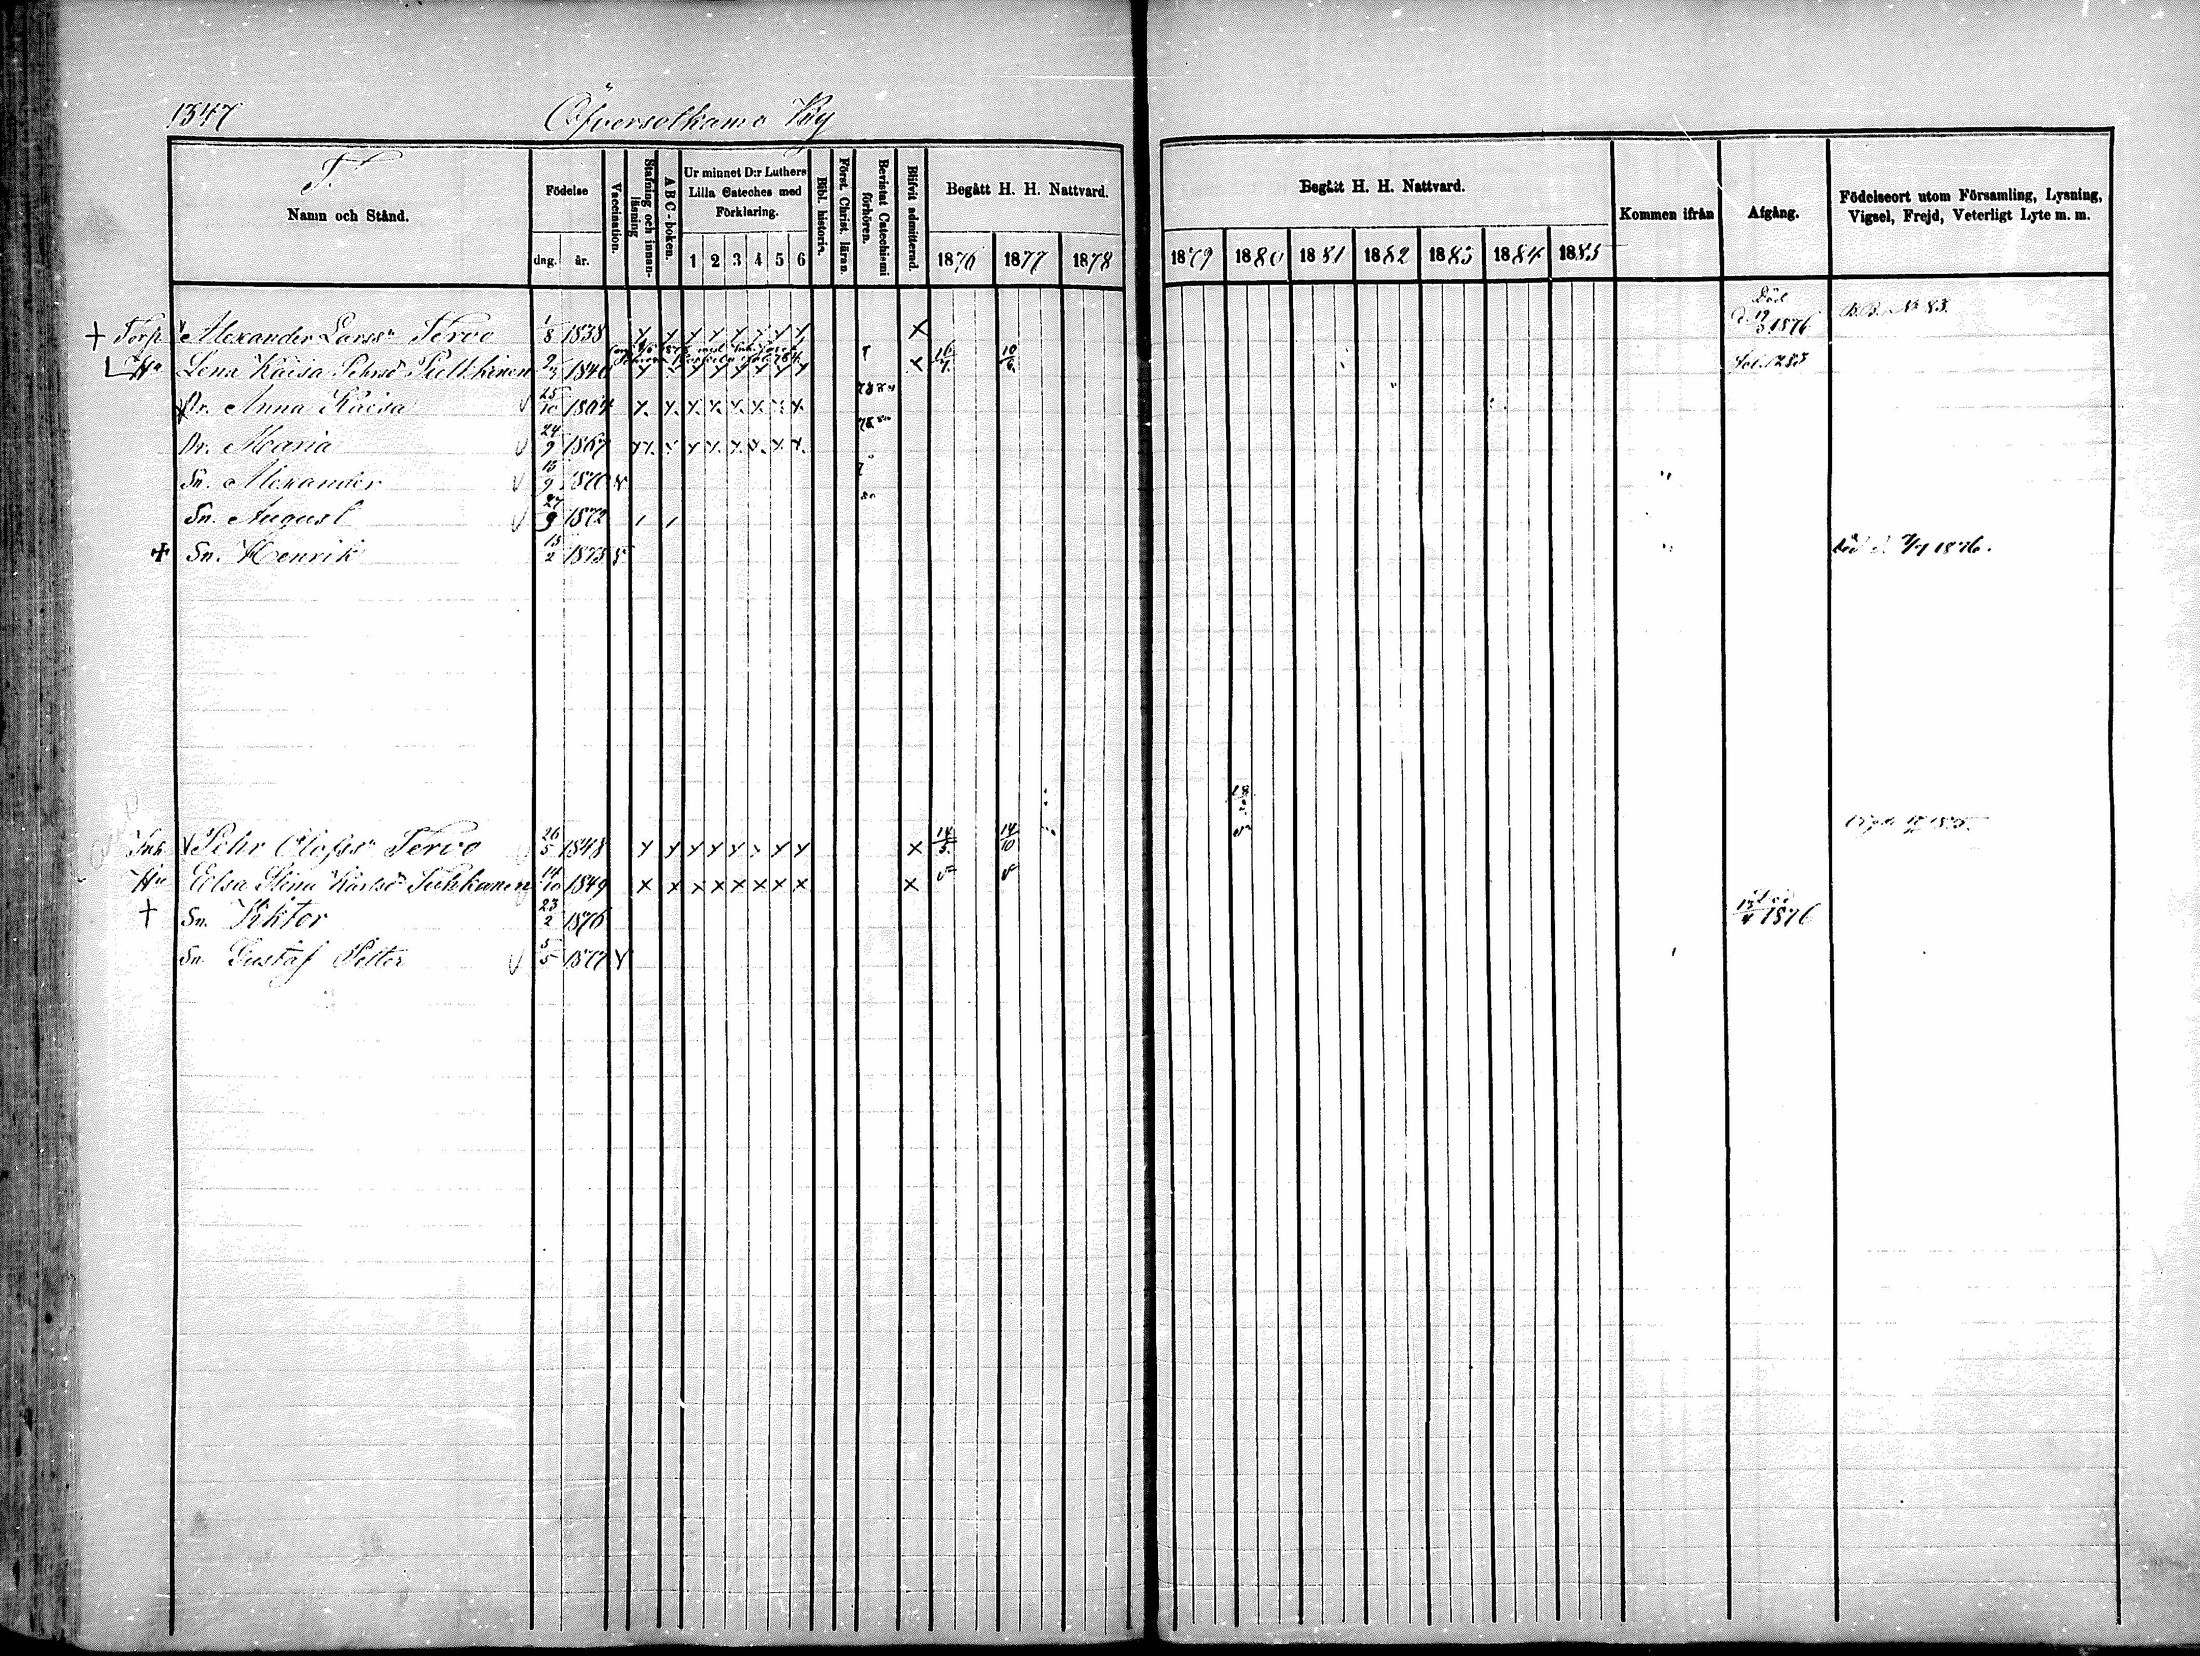 1347
Öfversotkamo By
T.
Namn och Stånd.
Födelse
dag. år.
Vaccination.
Stafning och innan-läsning
ABC-boken.
Ur minnet D:r Luthers Lilla Cateches med Förklaring.
1 2 3 4 5 6
Bibl. historia.
Först. Christ. läran.
Bevistat Catechismi förhören.
Blifvit admitterad.
Begått H. H. Nattvard.
1876 1877 1878
Begått H. H. Nattvard.
1879 1880 1881 1882 1883 1884 1885
Kommen ifrån
Afgång.
Födelseort utom Församling, Lysning, Vigsel, Frejd, Veterligt Lyte m. m.
+ Torp. Alexander Larss Tervo 1/8 1838 x x x x x x x x x Död 1876 No 83.
Hu Lena Kaisa Pehrsd Pulkkinen 1840 x x x x x x x x x 10/6 fol. 1283
Dr. Anna Kaisa 25/10 1864 x x x x x x x x
Dr. Maria 24/9 1867 x x x x x x x x
Sn. Alexander 13/9 1870 v
Sn. August 27/9 1872 / /
+ Sn. Henrik 13/2 1875 1876.
Inh Pehr Olofss Tervo 26/5 1848 x x x x x x x x x 14/5 14/10
Hu Elsa Stina Karlsd Tuhkanen 14/10 1849 x x x x x x x x x
+ Sn. Viktor 23/2 1876 1876
Sn Gustaf Petter 5/5 1877 v